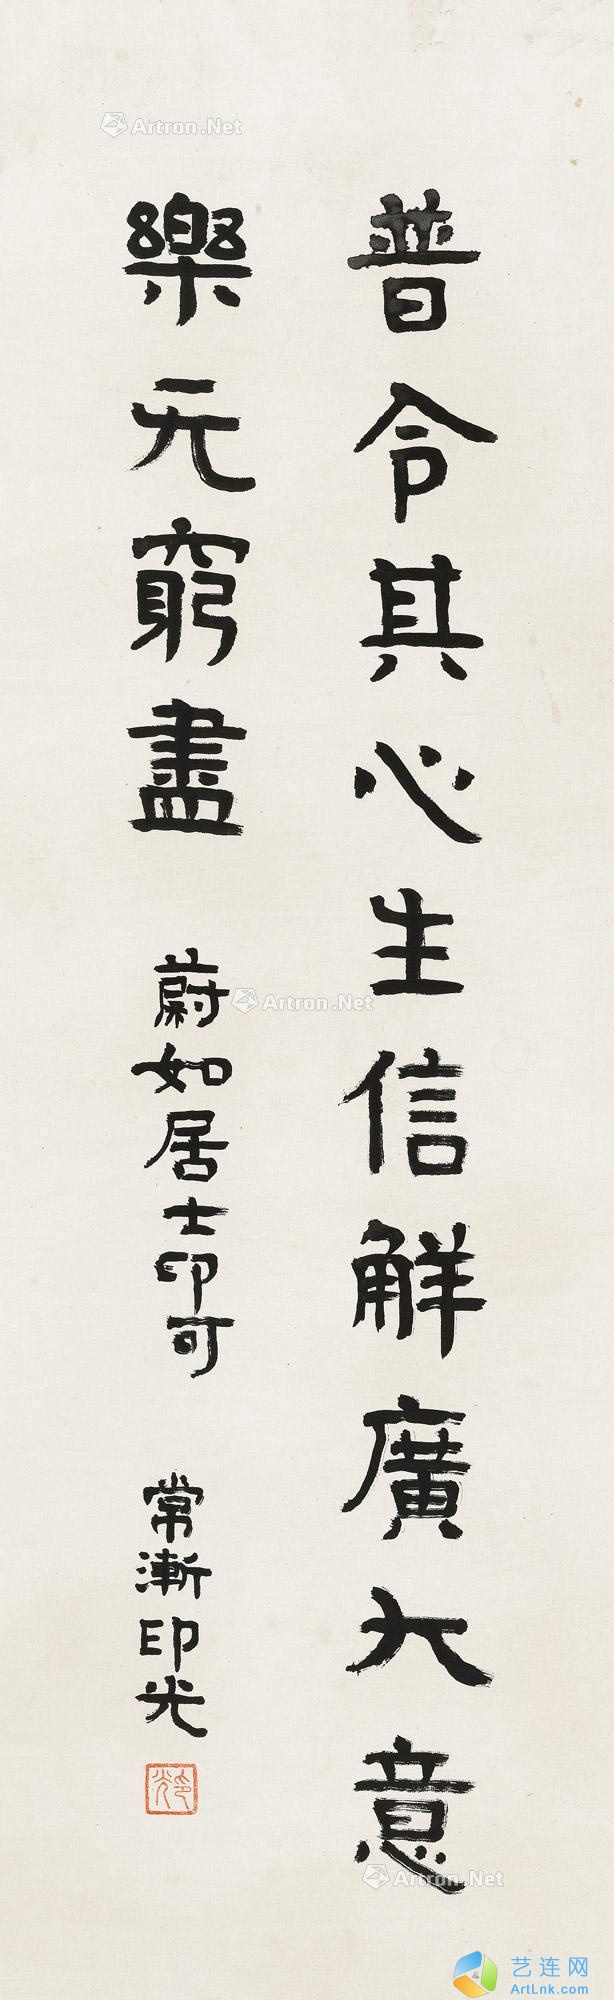 普令其心生信解廣大意
樂无窮盡
蔚如居士印可
常漸印光
印光
Artron.Net
Artron.Net
Artron.Net
艺连网
ArtLnk.com